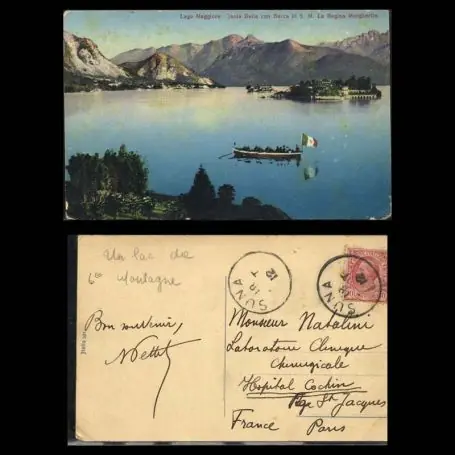 Lago Maggiore Isola Bella con Barca di S. M. La Regina Margherita
Un lac de
6e Montagne
Bon souvenir,
SUNA
SUNA
Monsieur Natalini
Laboratoire Clinique
Chirurgicale
Hopital Cochin
Rge St Jacques
France Paris